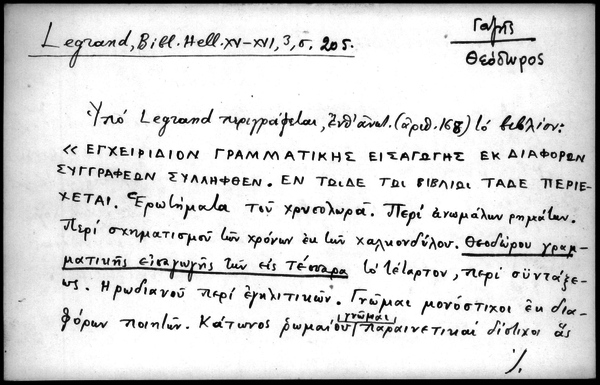 Legrand, Bibl. Hell. XV-XVI, 3, σ. 205.
Γαζῆς
Θεόδωρος
Ὑπό Legrand περιγράφεται, ἔνθ' ἀνωτ. (ἀριθ. 168) τό βιβλίον:
« ΕΓΧΕΙΡΙΔΙΟΝ ΓΡΑΜΜΑΤΙΚΗΣ ΕΙΣΑΓΩΓΗΣ ΕΚ ΔΙΑΦΟΡΩΝ
ΣΥΓΓΡΑΦΕΩΝ ΣΥΛΛΗΦΘΕΝ. ΕΝ ΤΩΙΔΕ ΤΩΙ ΒΙΒΛΙΩΙ ΤΑΔΕ ΠΕΡΙΕ-
ΧΕΤΑΙ. Ἐρωτήματα τοῦ χρυσολωρᾶ. Περί ἀνωμάλων ρημάτων.
Περί σχηματισμοῦ τῶν χρόνων ἐκ τῶν χαλκονδύλου. Θεοδώρου γραμ-
ματικῆς εἰσαγωγῆς τῶν εἰς τέσσαρα τό τέταρτον, περί συντάξε-
ως. Ἡρωδιανοῦ περί ἐγκλιτικῶν. Γνῶμαι μονόστιχοι ἐκ δια-
φόρων ποιητῶν. Κάτωνος ῥωμαίου γνῶμαι παραινετικαί δίστιχοι ἅς
./.